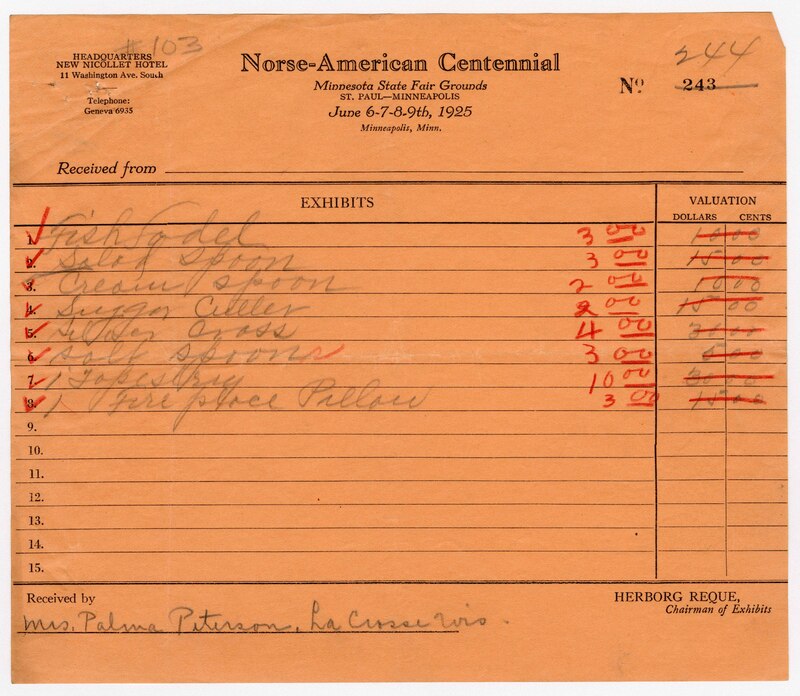 # 103
HEADQUARTERS
NEW NICOLLET HOTEL
11 Washington Ave. South
Telephone:
Geneva 6935
Norse-American Centennial
Minnesota State Fair Grounds
ST. PAUL—MINNEAPOLIS
June 6-7-8-9th, 1925
Minneapolis, Minn.
244
Nº 243
Received from
EXHIBITS VALUATION
DOLLARS CENTS
1. Fish 3 00 10 00
2. Salad Spoon 3 00 15 00
3. Cream spoon 2 00 10 00
4. 2 00 15 00
5. Cross 4 00 00
6. Salt spoons 3 00 5 00
7. 1 Tapestry 10 00 30 00
8. 1 Fire place Pillow 3 00 15 00
9.
10.
11.
12.
13.
14.
15.
Received by
HERBORG REQUE,
Chairman of Exhibits
Mrs. Palma Peterson, La Crosse Wis.